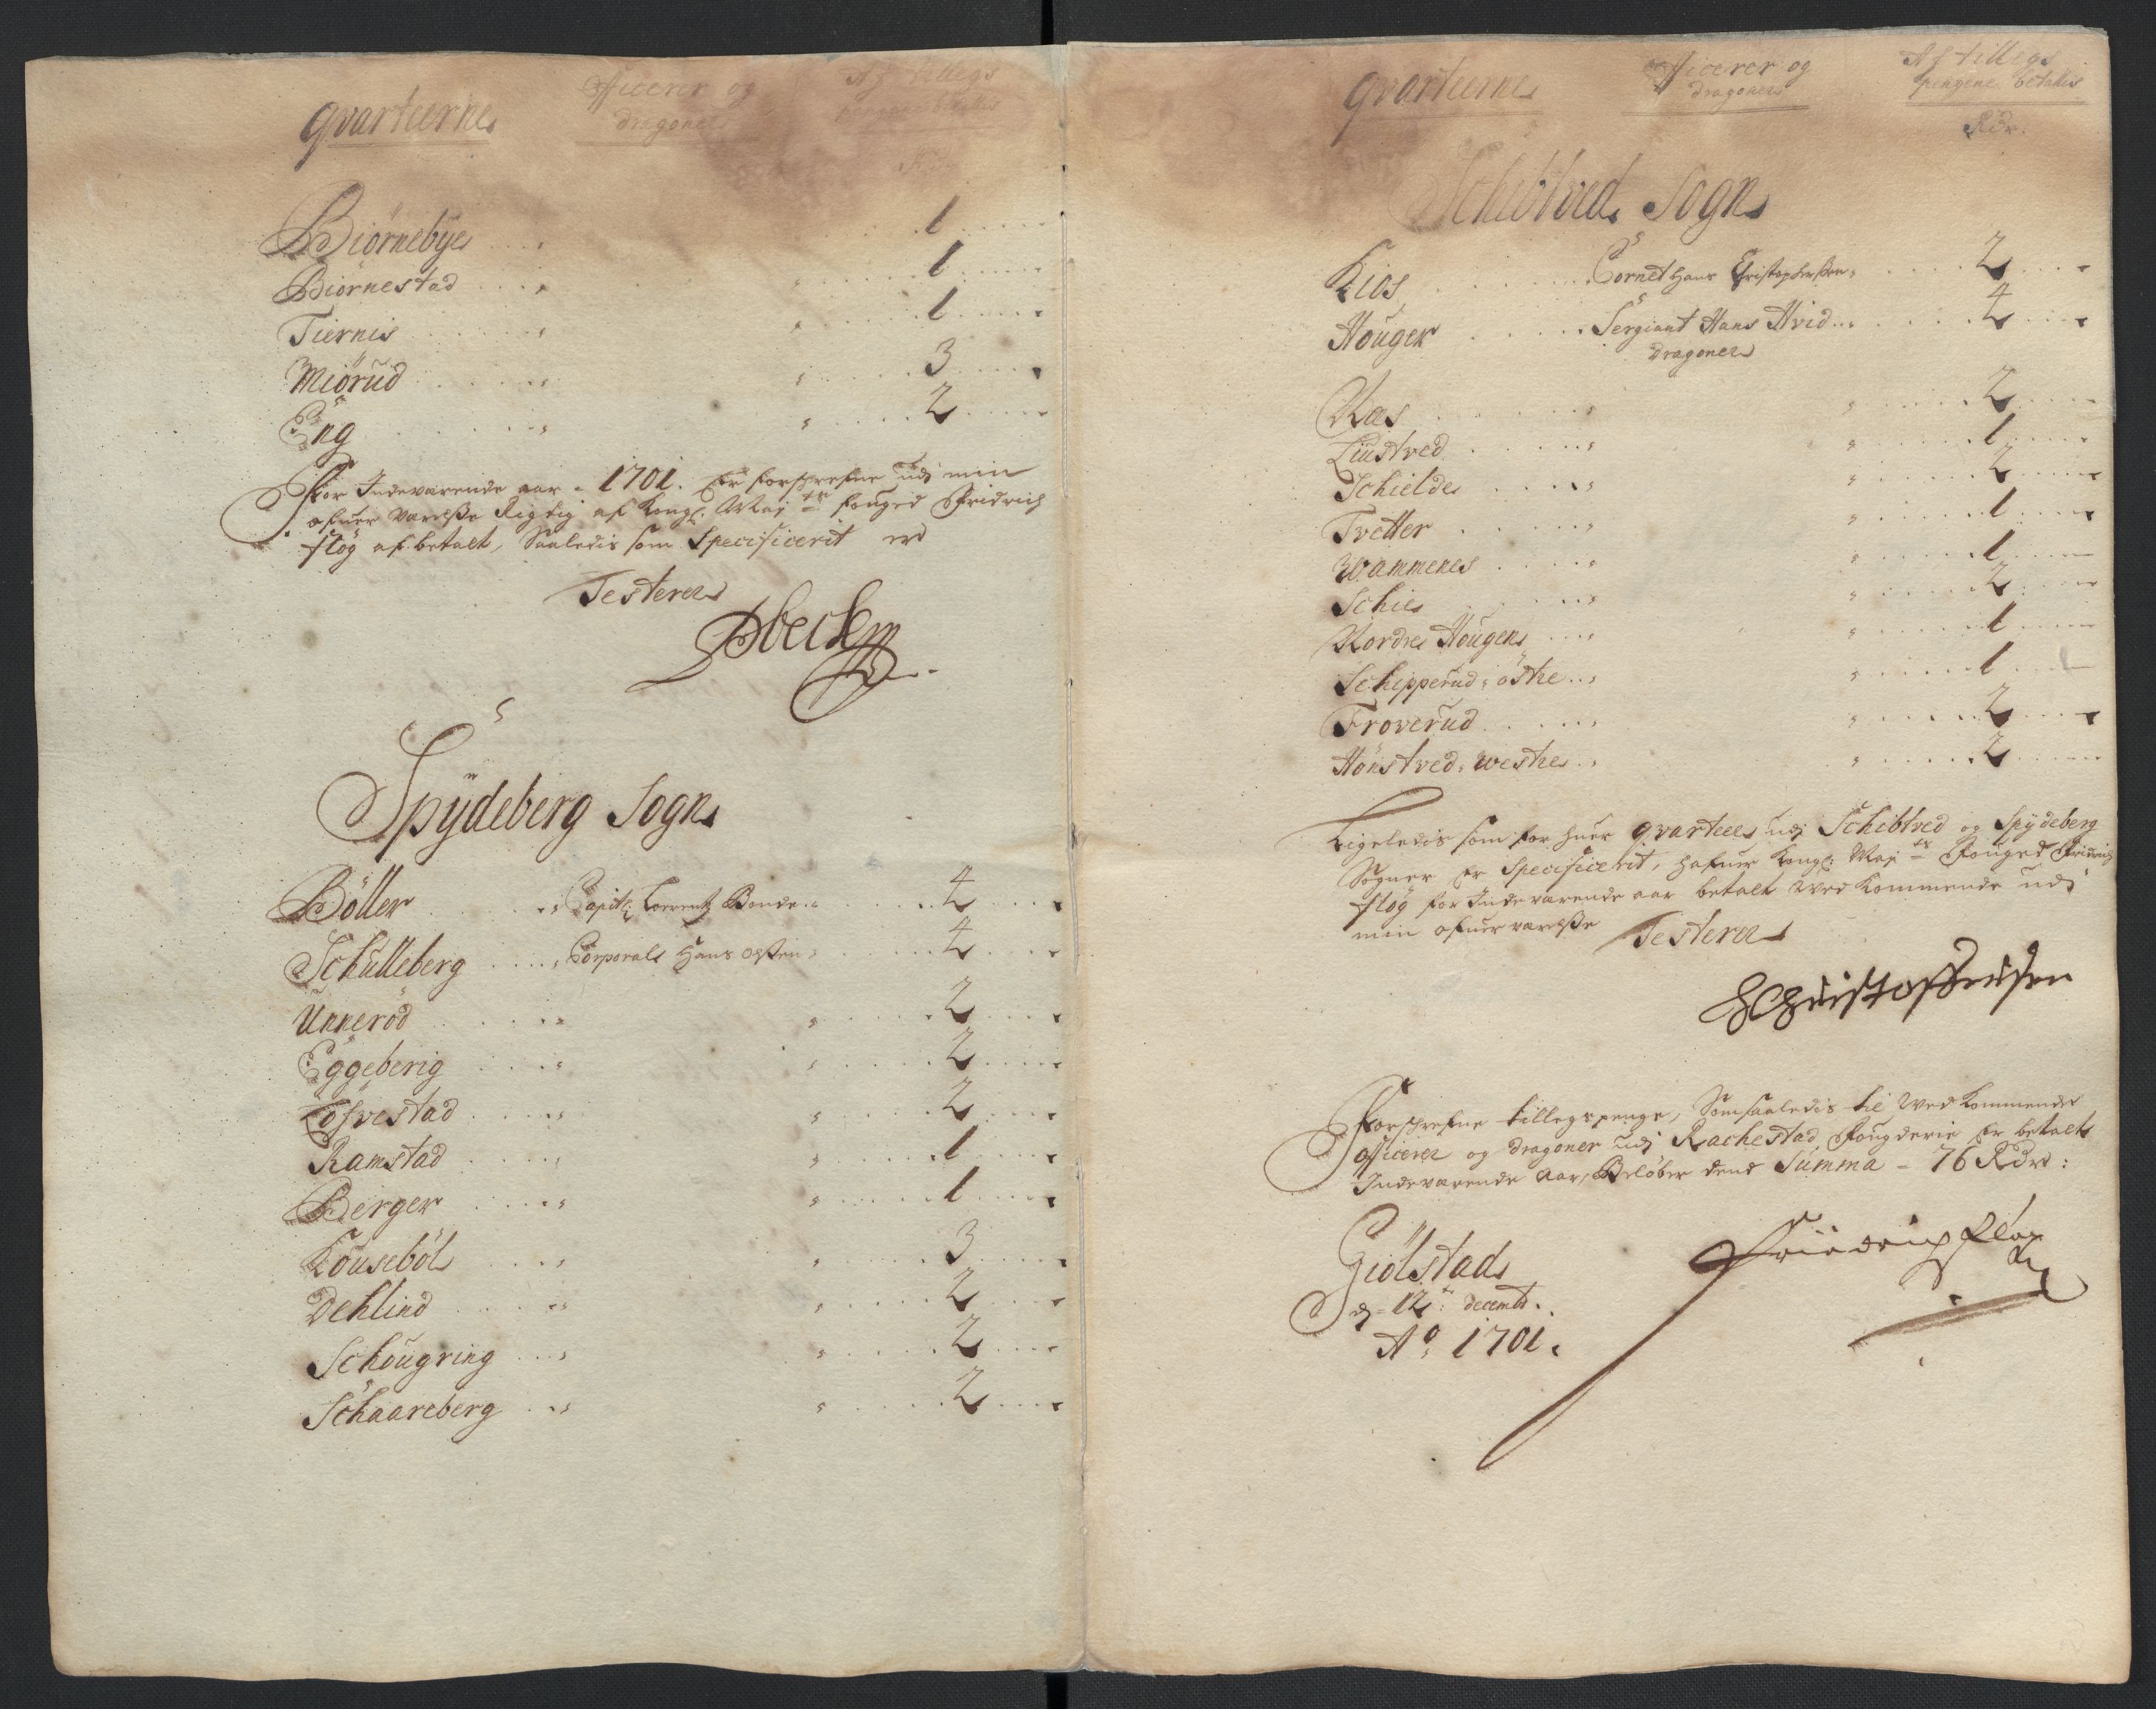 Qvarteerne Officerer og Af tillegs
dragoner pengene betallis
Biörnebye 1
Biörnestad 1
Tiernis 1
Miörud 3
Eng 2
For Indeværende aar - 1701. Er forschrefne udj min
ofuer værelsse Rigtig af Kongl: Maj:ts fouged Fridrich
fløg af betalt, Saaledis som Specificerit er
Testerer
Spydeberg Sogn
Böller Capit: Lorrentz Bonde 4
Schulleberg Corporals Hans Osten 4
Unneröd 2
Eggeberig 2
Tofvestad 2
Ramstad 1
Berger 1
Kouseböl 3
Dehlind 2
Schougring 2
Schaareberg 2
Qvarteerne Officerer og Af tillegs
dragoner pengene betallis
Rdr.
Schibtved Sogn
Kios Cornet Hans Christophersen 2
Houger Sergiant Hans Hvid 4
dragoner
Næs 2
Liustved 1
Schielde 2
Tvetter 1
Wammenes 1
Schie 2
Nordre Hougen 1
Schipperud östre 1
Froverud 2
Hönstved westre 2
Ligeledis som for huer qvarteer udj Schibtved og Spydeberg
Sogner Er Specificerit, hafuer Kongl: Maj:ts Fouged Fridrich
fløg for Indeværende aar betalt Ved Kommende udj
min ofuerværelsse Testerer
HChristoffersen
Forschrefne tillegspenge, Som saaledis til Ved Kommende
officerer og dragoner udj Rachestad Fougderie Er betalt
Indeværende Aar, Beløber dend Summa - 76 Rdr:
Giölstad
d= 12t: decembr.
Ao 1701.
Friedrich fløg